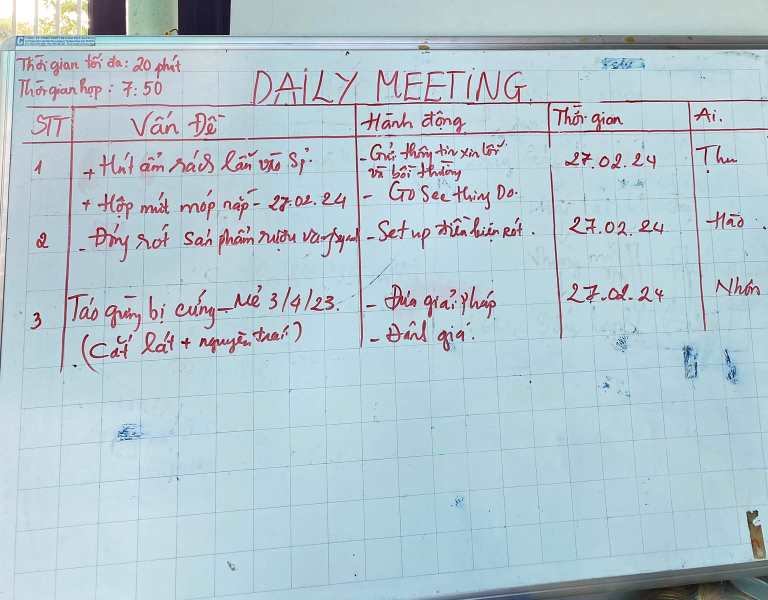 Thời gian tối đa: 20 phút
Thời gian họp: 7:50
DAILY MEETING
STT Vấn Đề Hành động Thời gian Ai.
1 + Hút ẩm rách lẫn vào Sp. - Gửi thông tin xin lỗi và bồi thường 27.02.24 Thu
+ Hộp mứt móp nắp - 27.02.24 - Go See Thing Do.
2 - Đóng rót sản phẩm rượu vang - Set up điều kiện rót. 27.02.24 Hào
3 Táo gừng bị cứng - Mẻ 3/4/23. - Đưa giải pháp 27.02.24 Nhôn
(Cắt lát + nguyên trái) - Đánh giá.